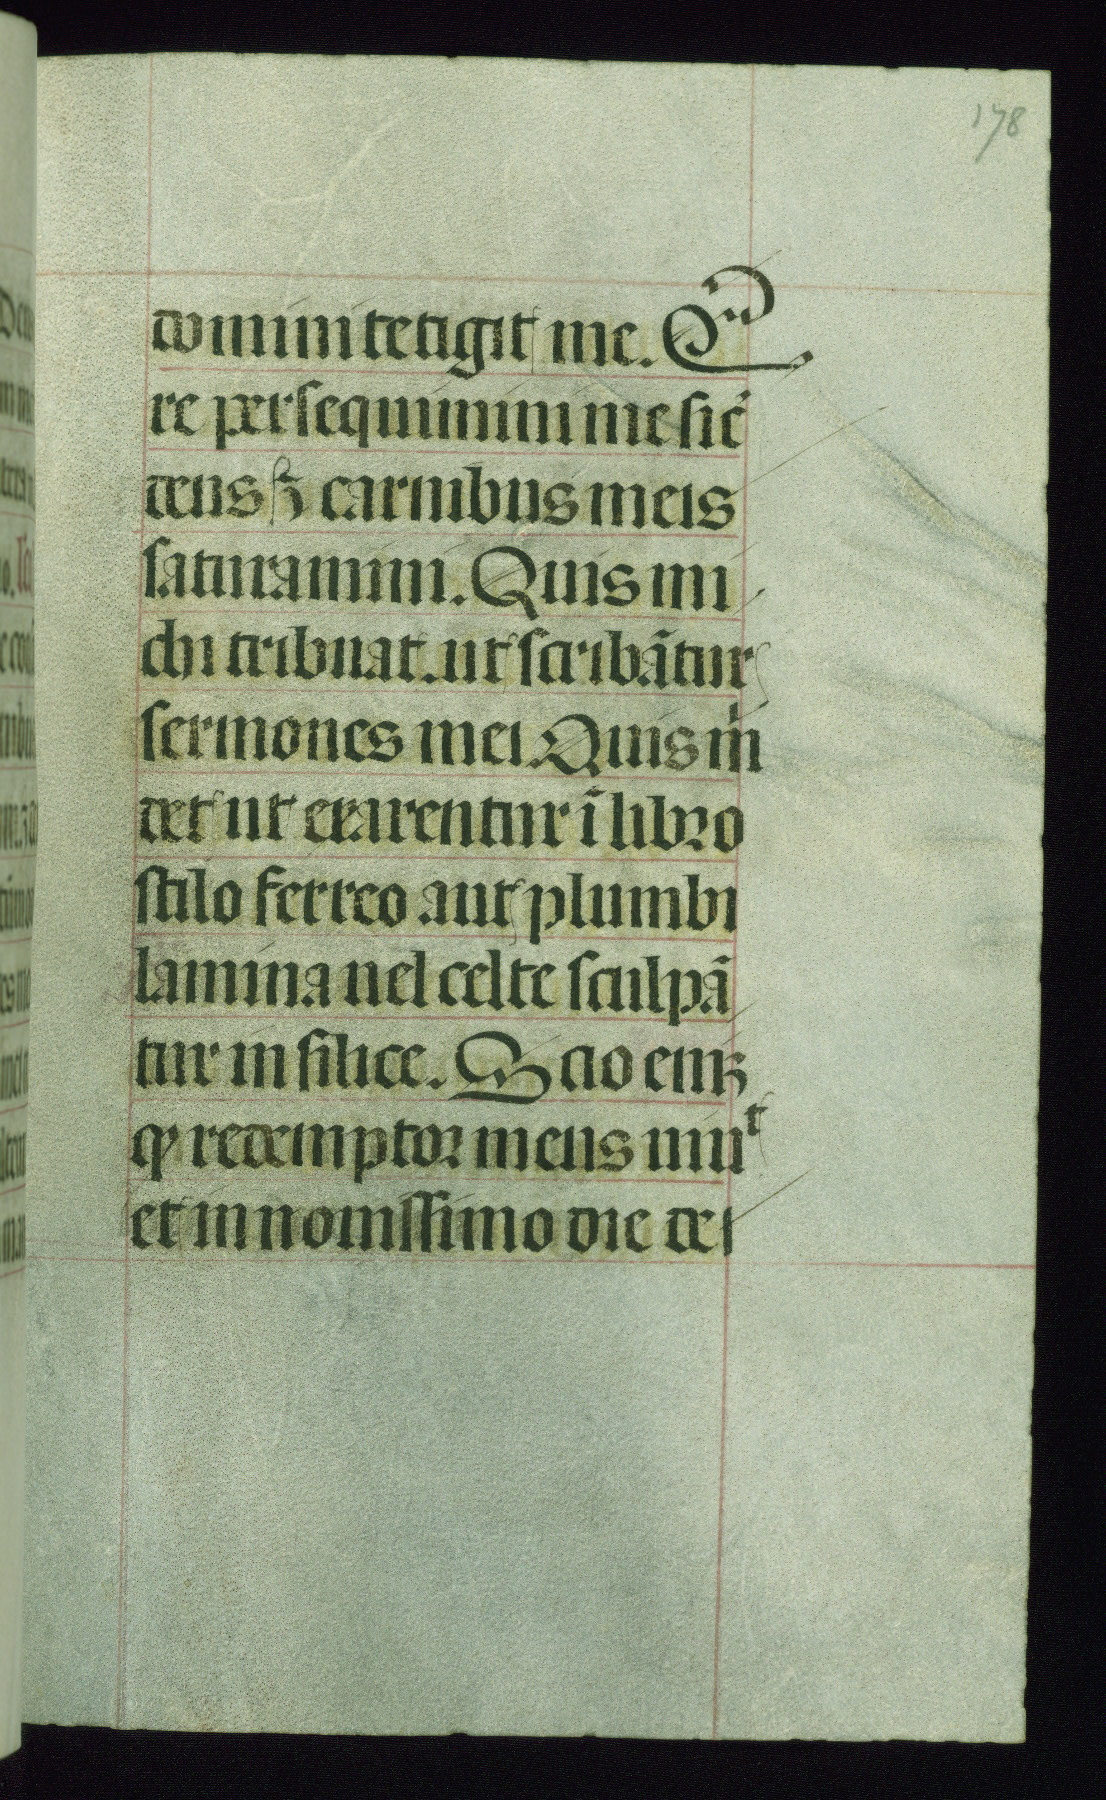 178
domini tetigit me. Qua
re persequimini me sic̄
deus ⁊ carnibus meis
saturamini. Quis mi
chi tribuat. ut scribātur
sermones mei. Quis m̄
det ut exarentur ī libro
stilo ferreo aut plumbi
lamina uel celte sculpā
tur in silice. Scio eniꝫ
ꝙ redemptor meus uiuᵗ
et in nouissimo die de